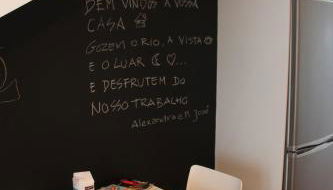 BEM VINDOS A VOSSA
CASA
GOZEM O RIO, A VISTA
E O LUAR ...
E DESFRUTEM DO
NOSSO TRABALHO
Alexandra e José